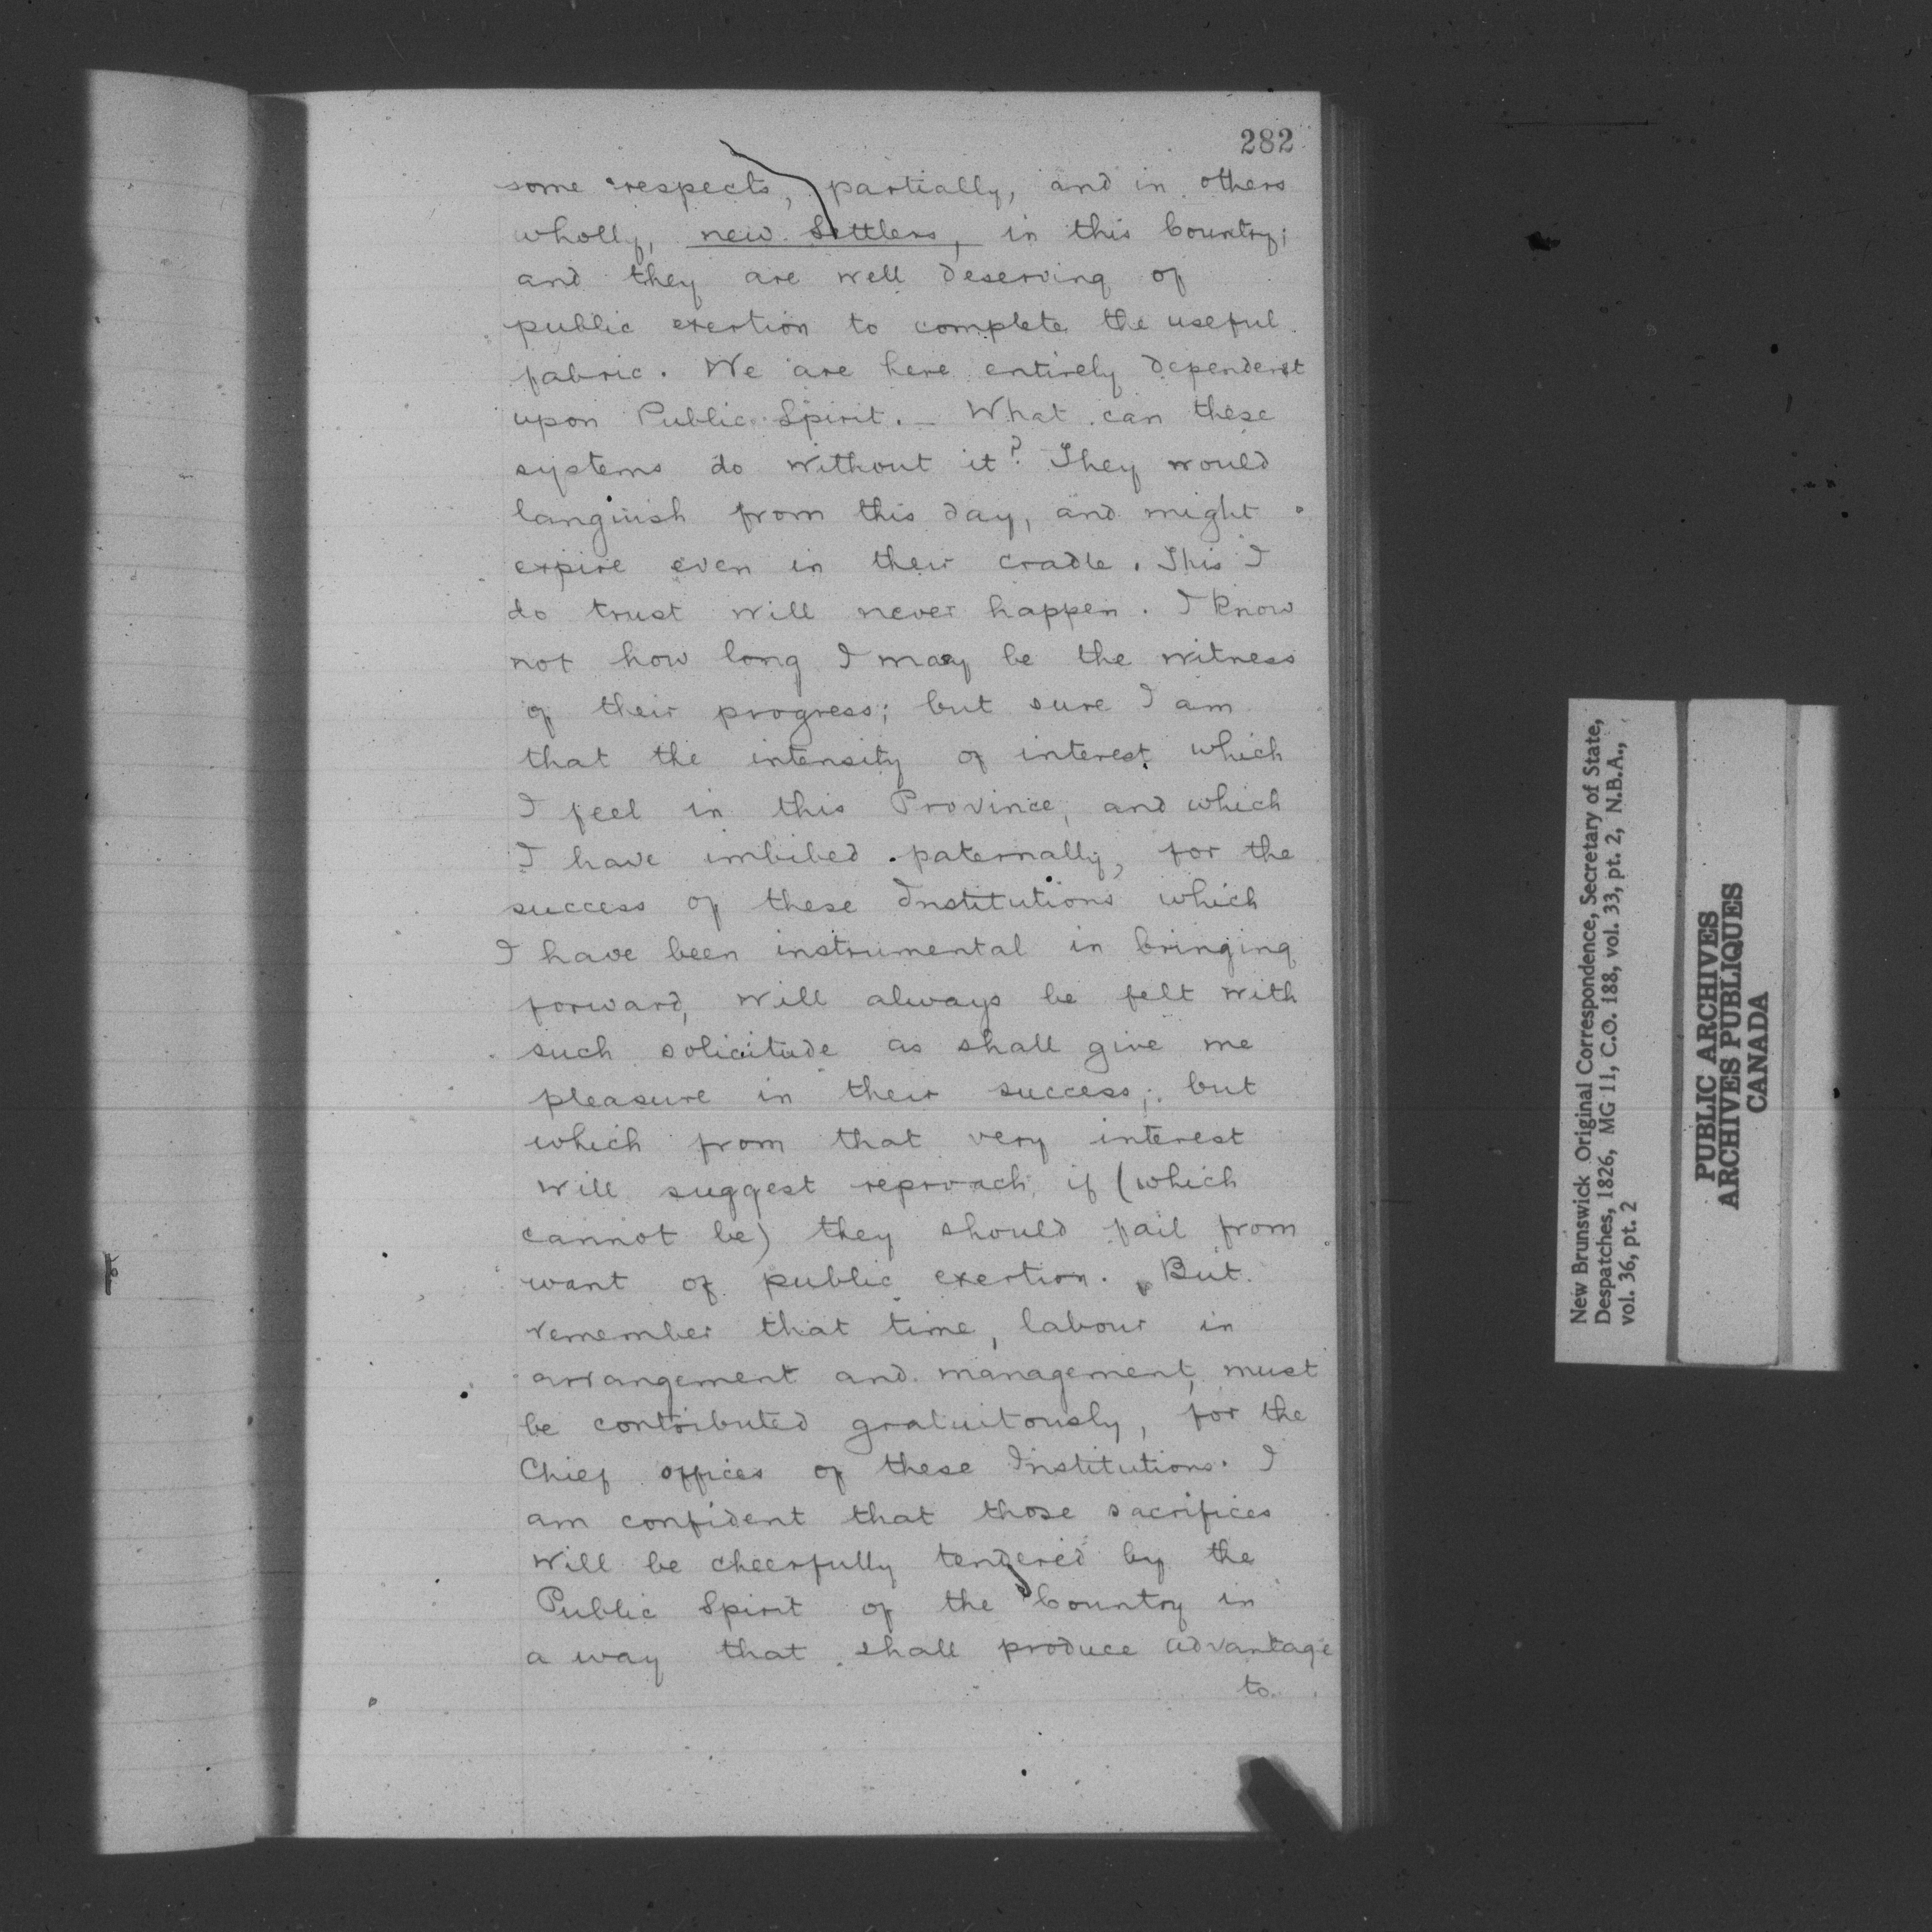 282
some respects, partially, and in others
wholly, new Settlers, in this Country;
and they are well deserving of
public exertion to complete the useful
fabric. We are here entirely dependent
upon Public Spirit. _ What can these
systems do without it? They would
languish from this day, and might
expire even in their cradle. This I
do trust will never happen. I know
not how long I may be the witness
of their progress; but sure I am
that the intensity of interest which
I feel in this Province, and which
I have imbibed paternally, for the
success of these Institutions which
I have been instrumental in bringing
forward, will always be felt with
such solicitude as shall give me
pleasure in their success; but
which from that very interest
will suggest reproach, if (which
cannot be) they should fail from
want of public exertion. But
remember that time, labour in
arrangement and management, must
be contributed gratuitously, for the
Chief offices of these Institutions. I
am confident that those sacrifices
will be cheerfully tendered by the
Public Spirit of the Country in
a way that shall produce advantage
to
New Brunswick Original Correspondence, Secretary of State,
Despatches, 1826, MG 11, C.O. 188, vol. 33, pt. 2, N.B.A.,
vol. 36, pt. 2
PUBLIC ARCHIVES
ARCHIVES PUBLIQUES
CANADA